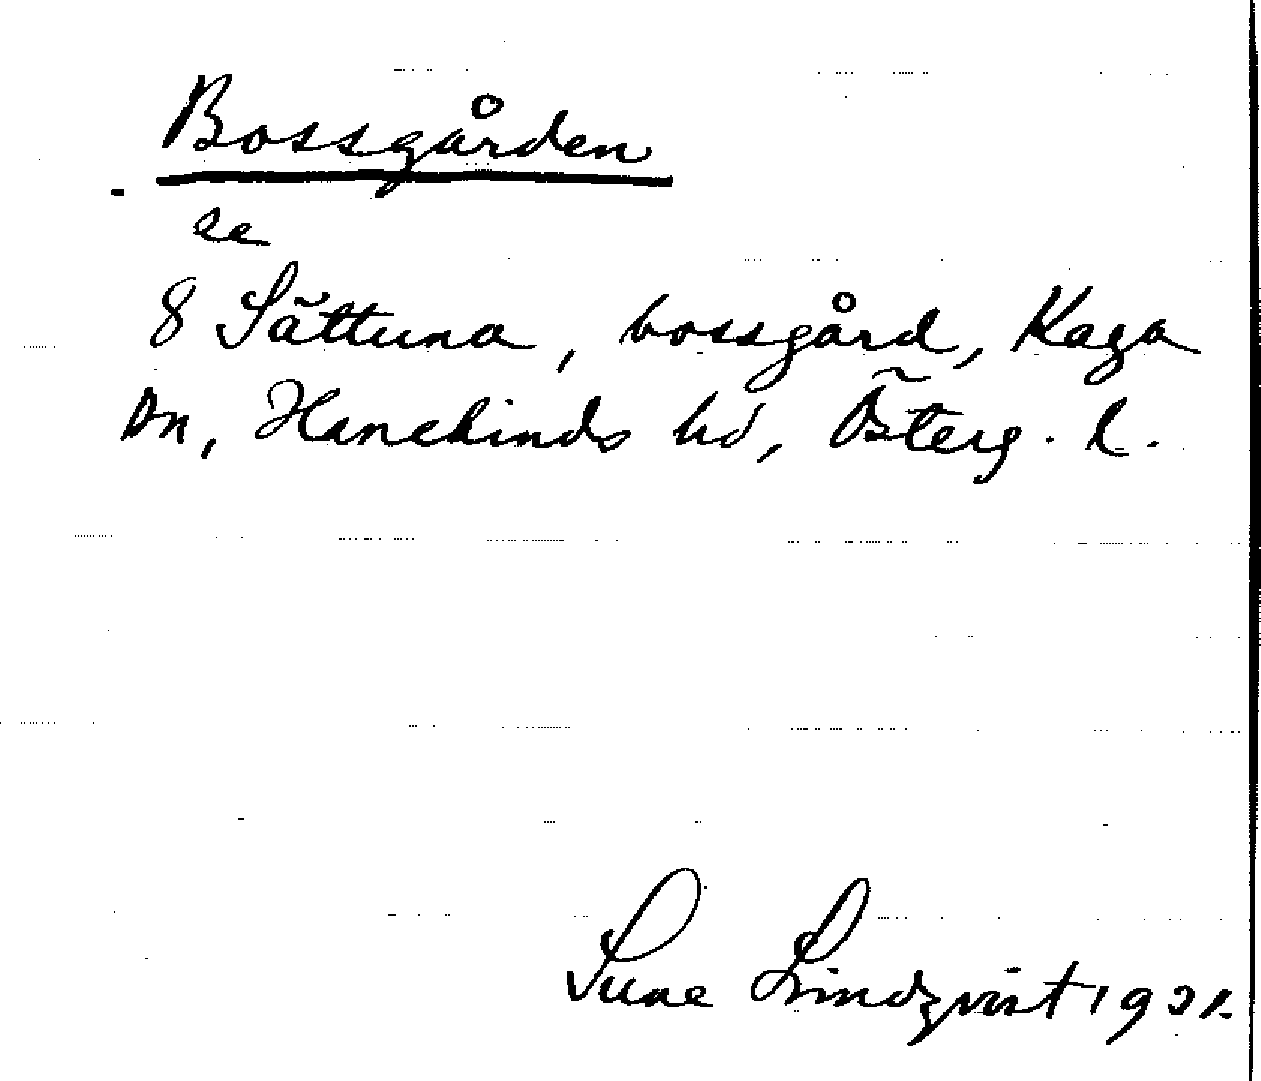 Bossgården
se
8 Sättuna, bossgård, Kaga
sn, Hanekinds hd, Österg. l.
Sune Lindqvist